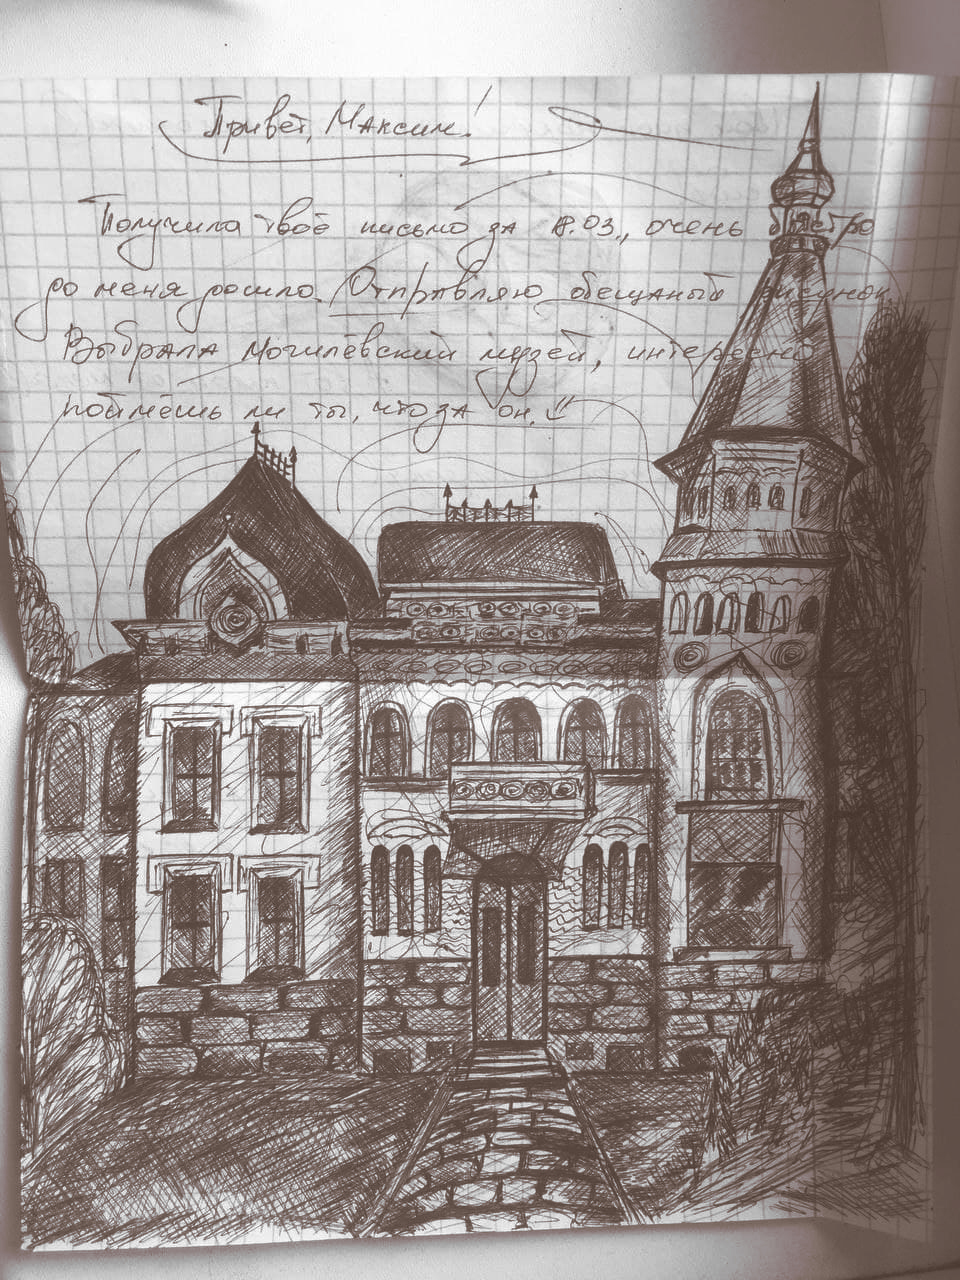 Привет, Максим!
Получила твоё письмо за 18.03., очень быстро
до меня дошло. Отправляю обещаный рисунок.
Выбрала Могилёвский музей, интересно
поймёшь ли ты, что за он.